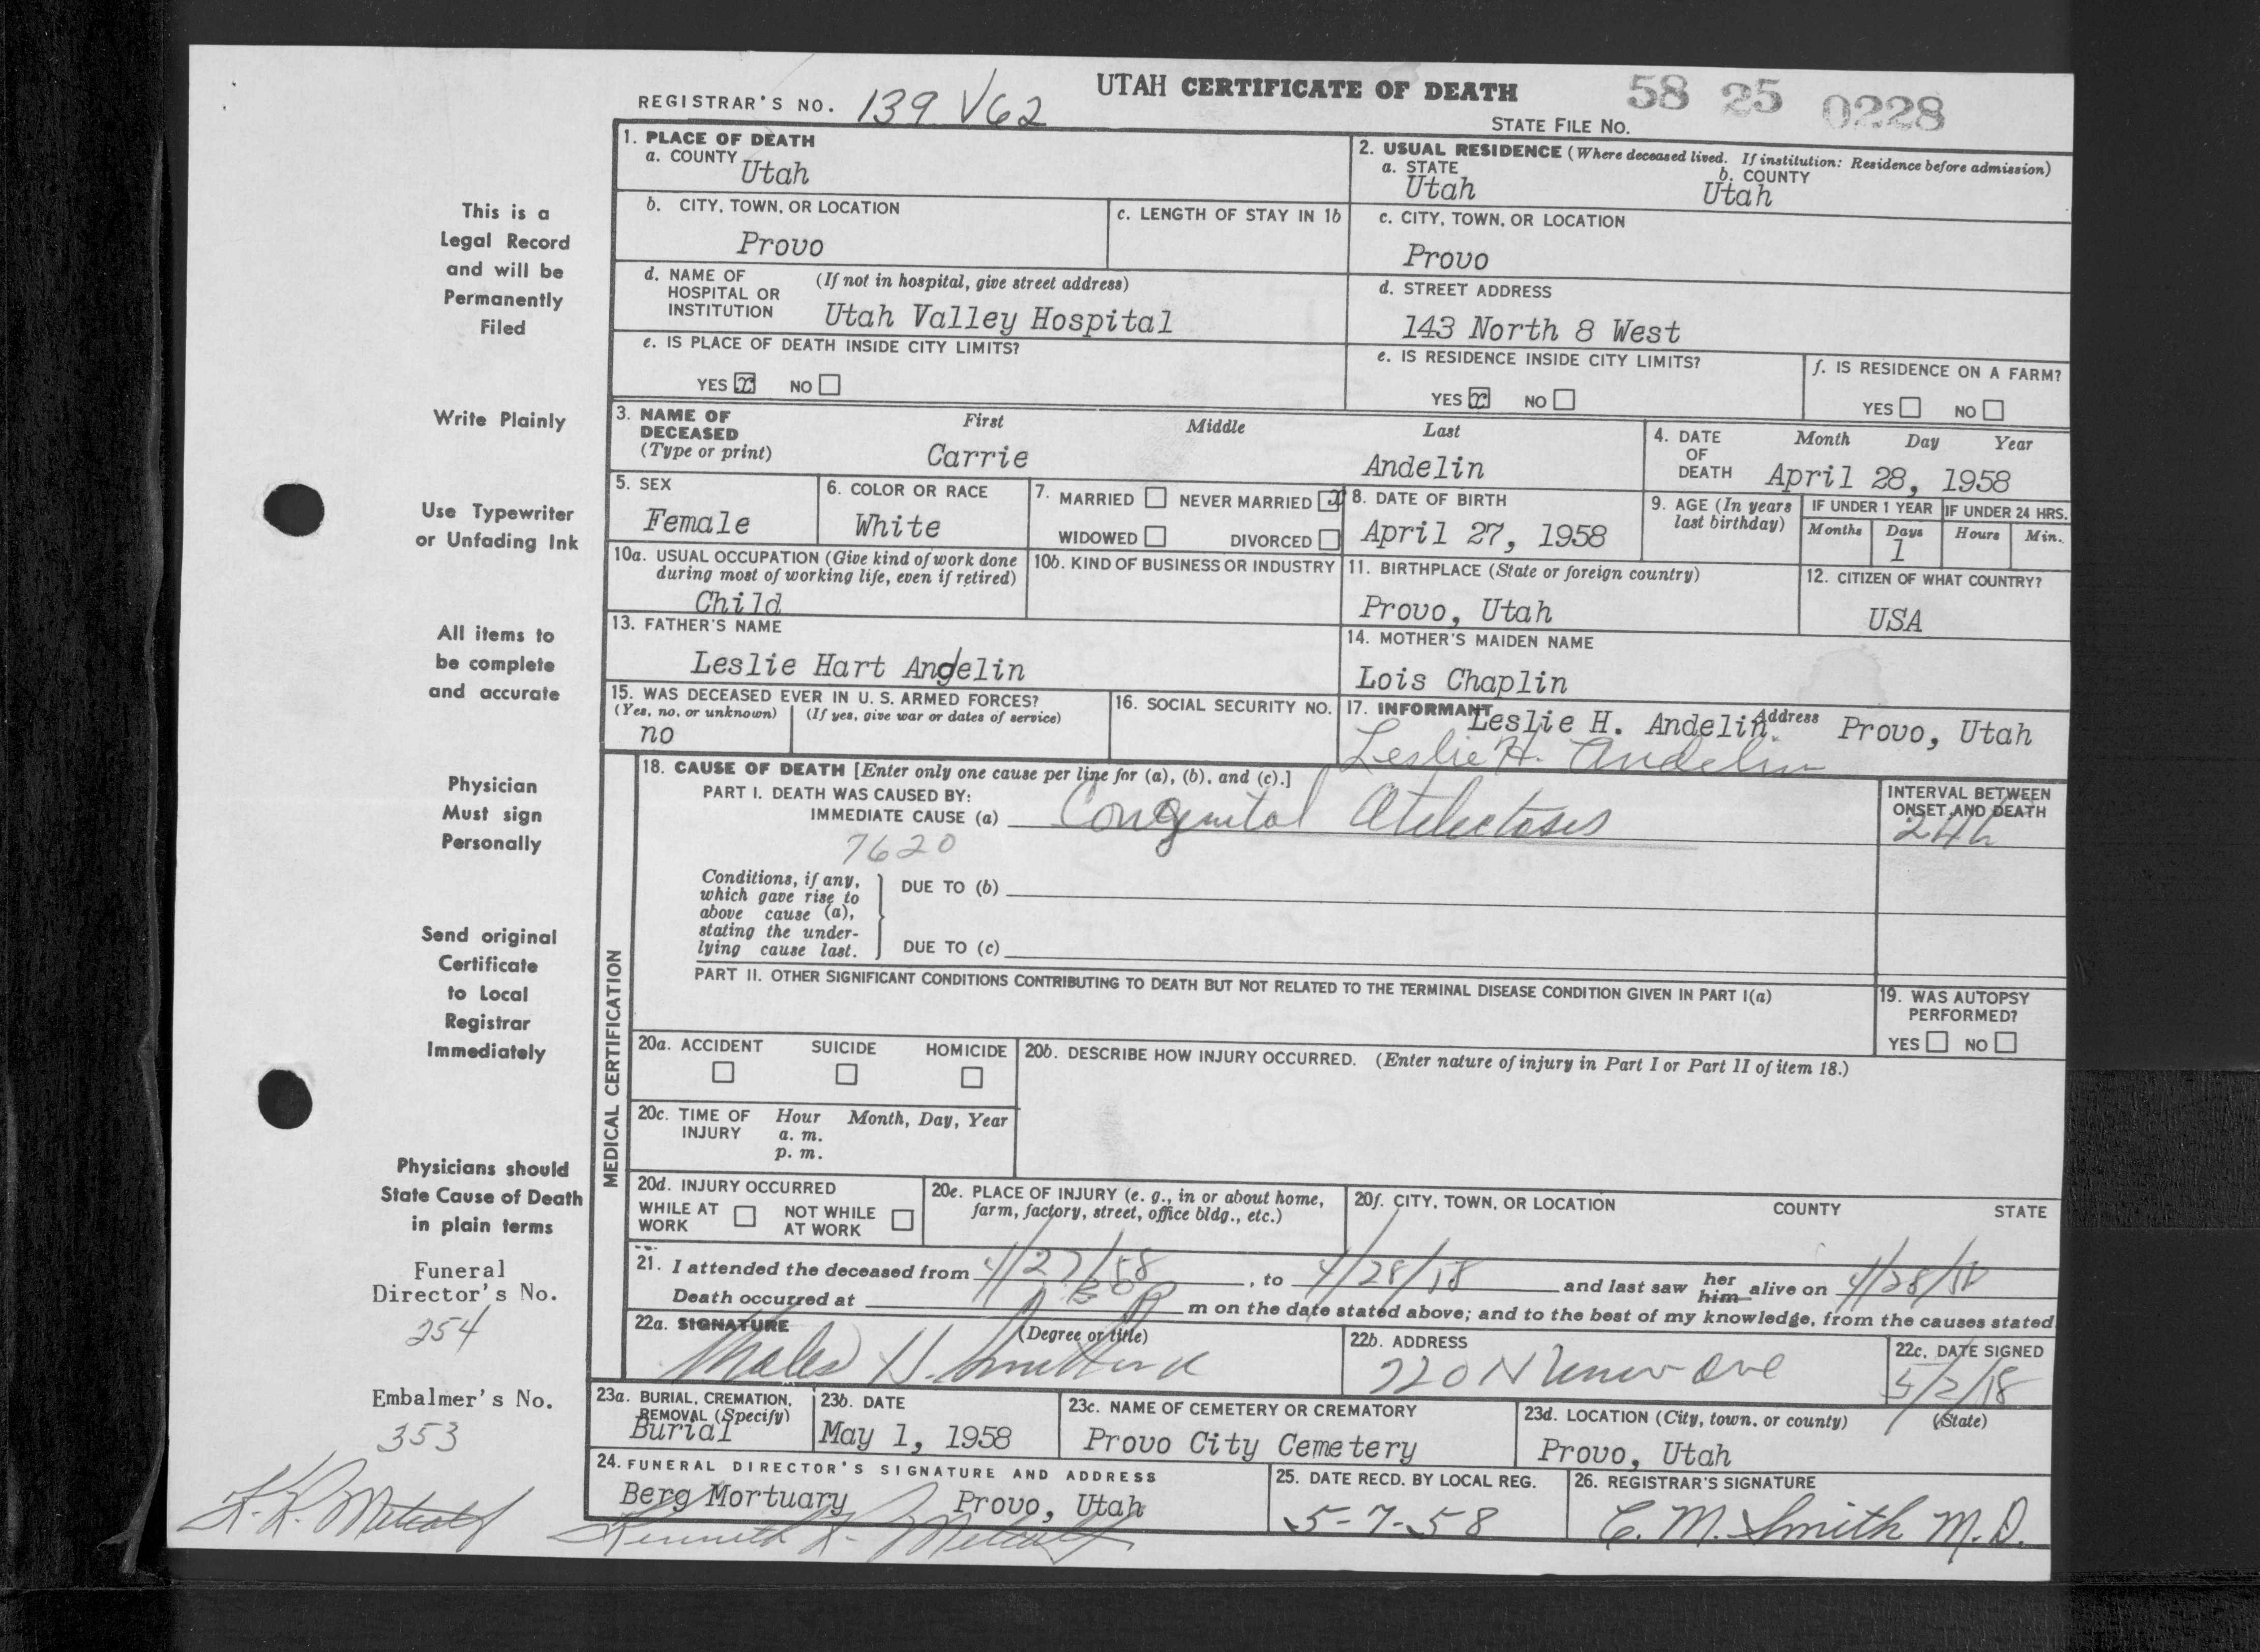 UTAH CERTIFICATE OF DEATH
58 25 0228
REGISTRAR'S NO. 139 V62
STATE FILE NO.
1. PLACE OF DEATH
a. COUNTY
Utah
2. USUAL RESIDENCE (Where deceased lived. If institution: Residence before admission)
a. STATE
Utah
b. COUNTY
Utah
b. CITY, TOWN, OR LOCATION
Provo
c. LENGTH OF STAY IN 1b
c. CITY, TOWN, OR LOCATION
Provo
d. NAME OF HOSPITAL OR INSTITUTION
(If not in hospital, give street address)
Utah Valley Hospital
d. STREET ADDRESS
143 North 8 West
e. IS PLACE OF DEATH INSIDE CITY LIMITS?
YES x NO
e. IS RESIDENCE INSIDE CITY LIMITS?
YES x NO
f. IS RESIDENCE ON A FARM?
YES NO
3. NAME OF DECEASED
(Type or print)
First Middle Last
Carrie Andelin
4. DATE OF DEATH
Month Day Year
April 28, 1958
5. SEX
Female
6. COLOR OR RACE
White
7. MARRIED NEVER MARRIED x
WIDOWED DIVORCED
8. DATE OF BIRTH
April 27, 1958
9. AGE (In years last birthday)
IF UNDER 1 YEAR
Months Days
1
IF UNDER 24 HRS.
Hours Min.
10a. USUAL OCCUPATION (Give kind of work done during most of working life, even if retired)
Child
10b. KIND OF BUSINESS OR INDUSTRY
11. BIRTHPLACE (State or foreign country)
Provo, Utah
12. CITIZEN OF WHAT COUNTRY?
USA
13. FATHER'S NAME
Leslie Hart Andelin
14. MOTHER'S MAIDEN NAME
Lois Chaplin
15. WAS DECEASED EVER IN U. S. ARMED FORCES?
(Yes, no, or unknown) (If yes, give war or dates of service)
no
16. SOCIAL SECURITY NO.
17. INFORMANT Leslie H. Andelin Address Provo, Utah
Leslie H. Andelin
MEDICAL CERTIFICATION
18. CAUSE OF DEATH [Enter only one cause per line for (a), (b), and (c).]
PART I. DEATH WAS CAUSED BY:
IMMEDIATE CAUSE (a) Congenital Atelectasis
7620
INTERVAL BETWEEN ONSET AND DEATH
24h
Conditions, if any, which gave rise to above cause (a), stating the underlying cause last.
DUE TO (b)
DUE TO (c)
PART II. OTHER SIGNIFICANT CONDITIONS CONTRIBUTING TO DEATH BUT NOT RELATED TO THE TERMINAL DISEASE CONDITION GIVEN IN PART I(a)
19. WAS AUTOPSY PERFORMED?
YES NO
20a. ACCIDENT SUICIDE HOMICIDE
20b. DESCRIBE HOW INJURY OCCURRED. (Enter nature of injury in Part I or Part II of item 18.)
20c. TIME OF INJURY
Hour Month, Day, Year
a. m.
p. m.
20d. INJURY OCCURRED
WHILE AT WORK NOT WHILE AT WORK
20e. PLACE OF INJURY (e. g., in or about home, farm, factory, street, office bldg., etc.)
20f. CITY, TOWN, OR LOCATION COUNTY STATE
21. I attended the deceased from 4/27/58, to 4/28/58 and last saw her him alive on 4/28/58
Death occurred at m on the date stated above; and to the best of my knowledge, from the causes stated
22a. SIGNATURE (Degree or title)
22b. ADDRESS
220 N Univ Ave
22c. DATE SIGNED
5/2/58
23a. BURIAL, CREMATION, REMOVAL (Specify)
Burial
23b. DATE
May 1, 1958
23c. NAME OF CEMETERY OR CREMATORY
Provo City Cemetery
23d. LOCATION (City, town, or county) (State)
Provo, Utah
24. FUNERAL DIRECTOR'S SIGNATURE AND ADDRESS
Berg Mortuary Provo, Utah
Kenneth K. Metcalf
25. DATE RECD. BY LOCAL REG.
5-7-58
26. REGISTRAR'S SIGNATURE
C. M. Smith M.D.
This is a
Legal Record
and will be
Permanently
Filed
Write Plainly
Use Typewriter
or Unfading Ink
All items to
be complete
and accurate
Physician
Must sign
Personally
Send original
Certificate
to Local
Registrar
Immediately
Physicians should
State Cause of Death
in plain terms
Funeral
Director's No.
254
Embalmer's No.
353
K. K. Metcalf